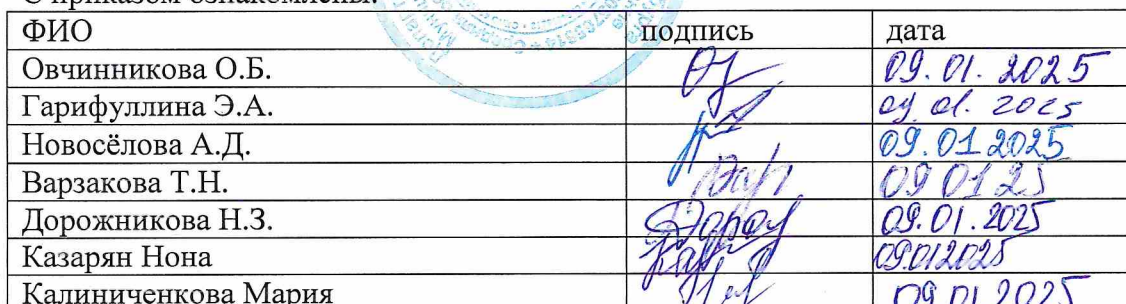 С приказом ознакомлены:
ФИО подпись дата
Овчинникова О.Б. 09.01.2025
Гарифуллина Э.А. 09.01.2025
Новосёлова А.Д. 09.01.2025
Варзакова Т.Н. 09 01 25
Дорожникова Н.З. 09.01.2025
Казарян Нона 09.01.2025
Калиниченкова Мария 09.01.2025